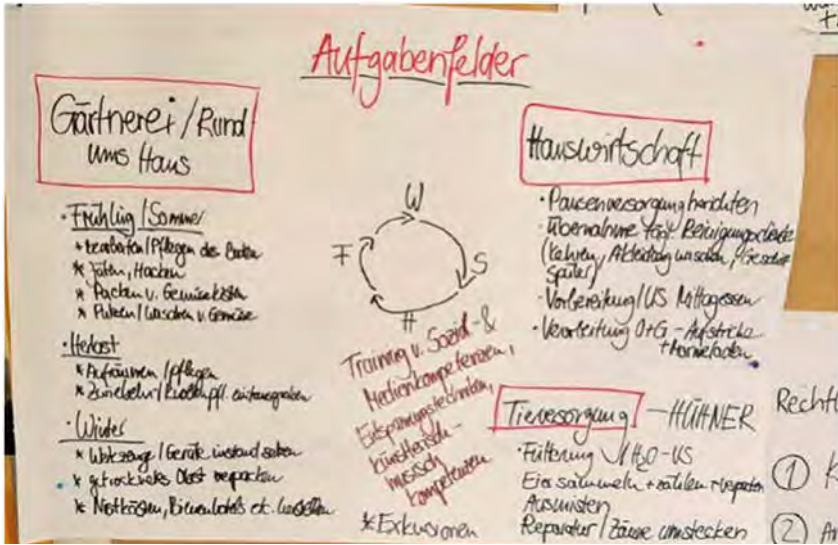 Aufgabenfelder
Gärtnerei / Rund
ums Haus
· Frühling / Sommer
* bearbeiten / Pflegen des Boden
* Jäten, Hacken
* Packen v. Gemüsekisten
* Putzen / waschen v. Gemüse
· Herbst
* Aufräumen / pflegen
* Zwiebeln / Knollenpfl.
· Winter
* Werkzeuge / Geräte instand setzen
* getrocknetes Obst verpacken
* Nistkästen, Bienenhotels etc. herstellen
W
F
S
H
Training v. Sozial- &
Medienkompetenzen,
Entspannungstechniken,
künstlerisch-
musisch
Kompetenzen
* Exkursionen
Hauswirtschaft
· Pausenversorgung herrichten
· Übernahme Reinigungsdienste
(Kehren, waschen, Geschirr
spülen)
· Vorbereitung / US Mittagessen
· Verarbeitung O+G - Aufstriche
+ Marmeladen
Tierversorgung - HÜHNER
· Fütterung / H₂O - US
Eier sammeln + zählen + verpacken
Ausmisten
Reparatur / Zäune umstecken
1
2